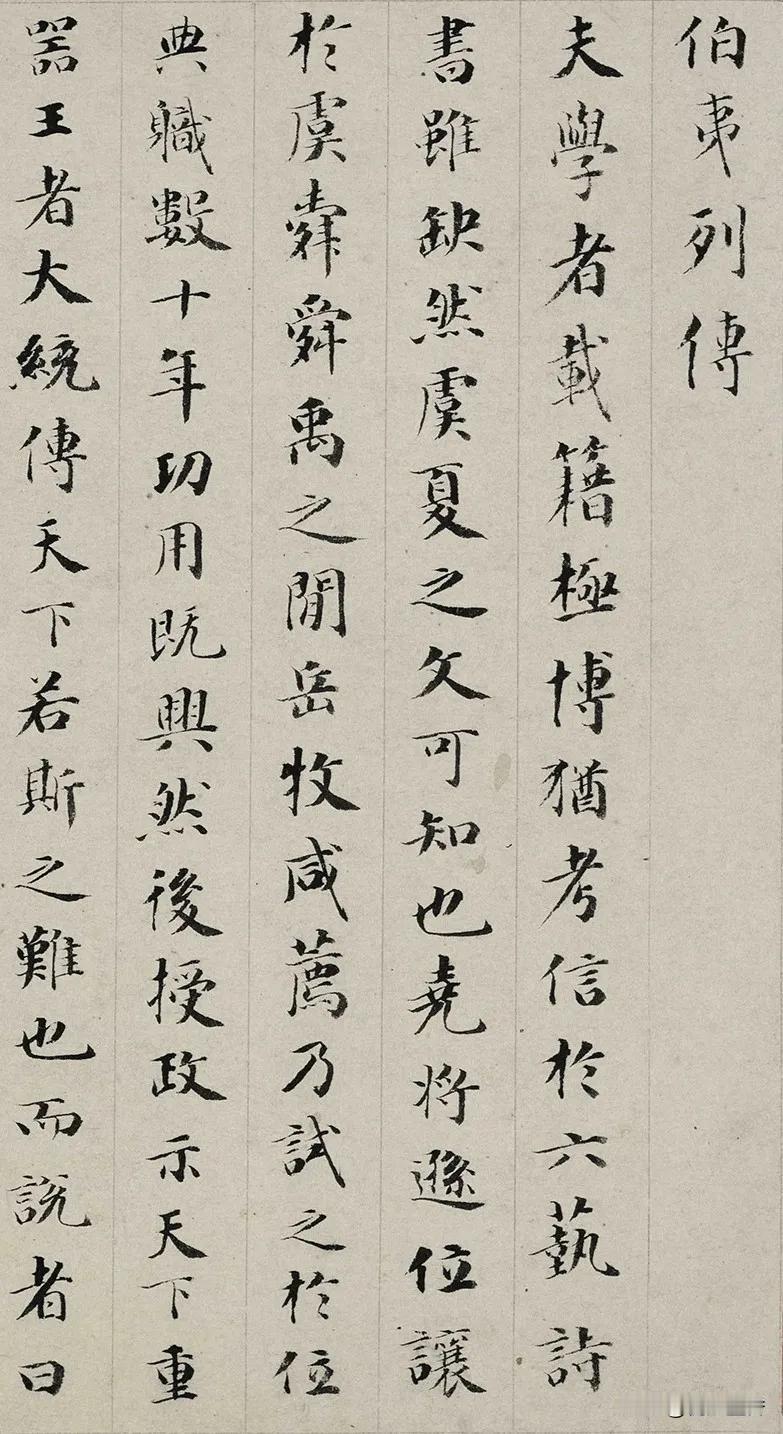 伯夷列傳
夫學者載籍極博猶考信於六藝詩
書雖缺然虞夏之文可知也堯將遜位讓
於虞舜舜禹之閒岳牧咸薦乃試之於位
典職數十年功用既興然後授政示天下重
器王者大統傳天下若斯之難也而說者曰